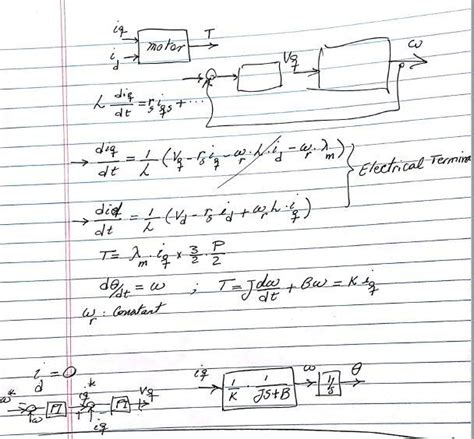 iq
id
motor
T
Vq
ω
L diq/dt = rs iqs + ...
→ diq/dt = 1/L (Vq - rs iq - ωr · L · id - ωr · λm)
→ did/dt = 1/L (Vd - rs id + ωr L · iq)
} Electrical Termina
T = λm · iq × 3/2 · P/2
dθ/dt = ω ; T = J dω/dt + Bω = K iq
ωr : Constant
id = 0
ω* ω PI iq* iq PI Vq
iq 1/K · 1/JS+B ω 1/S θ